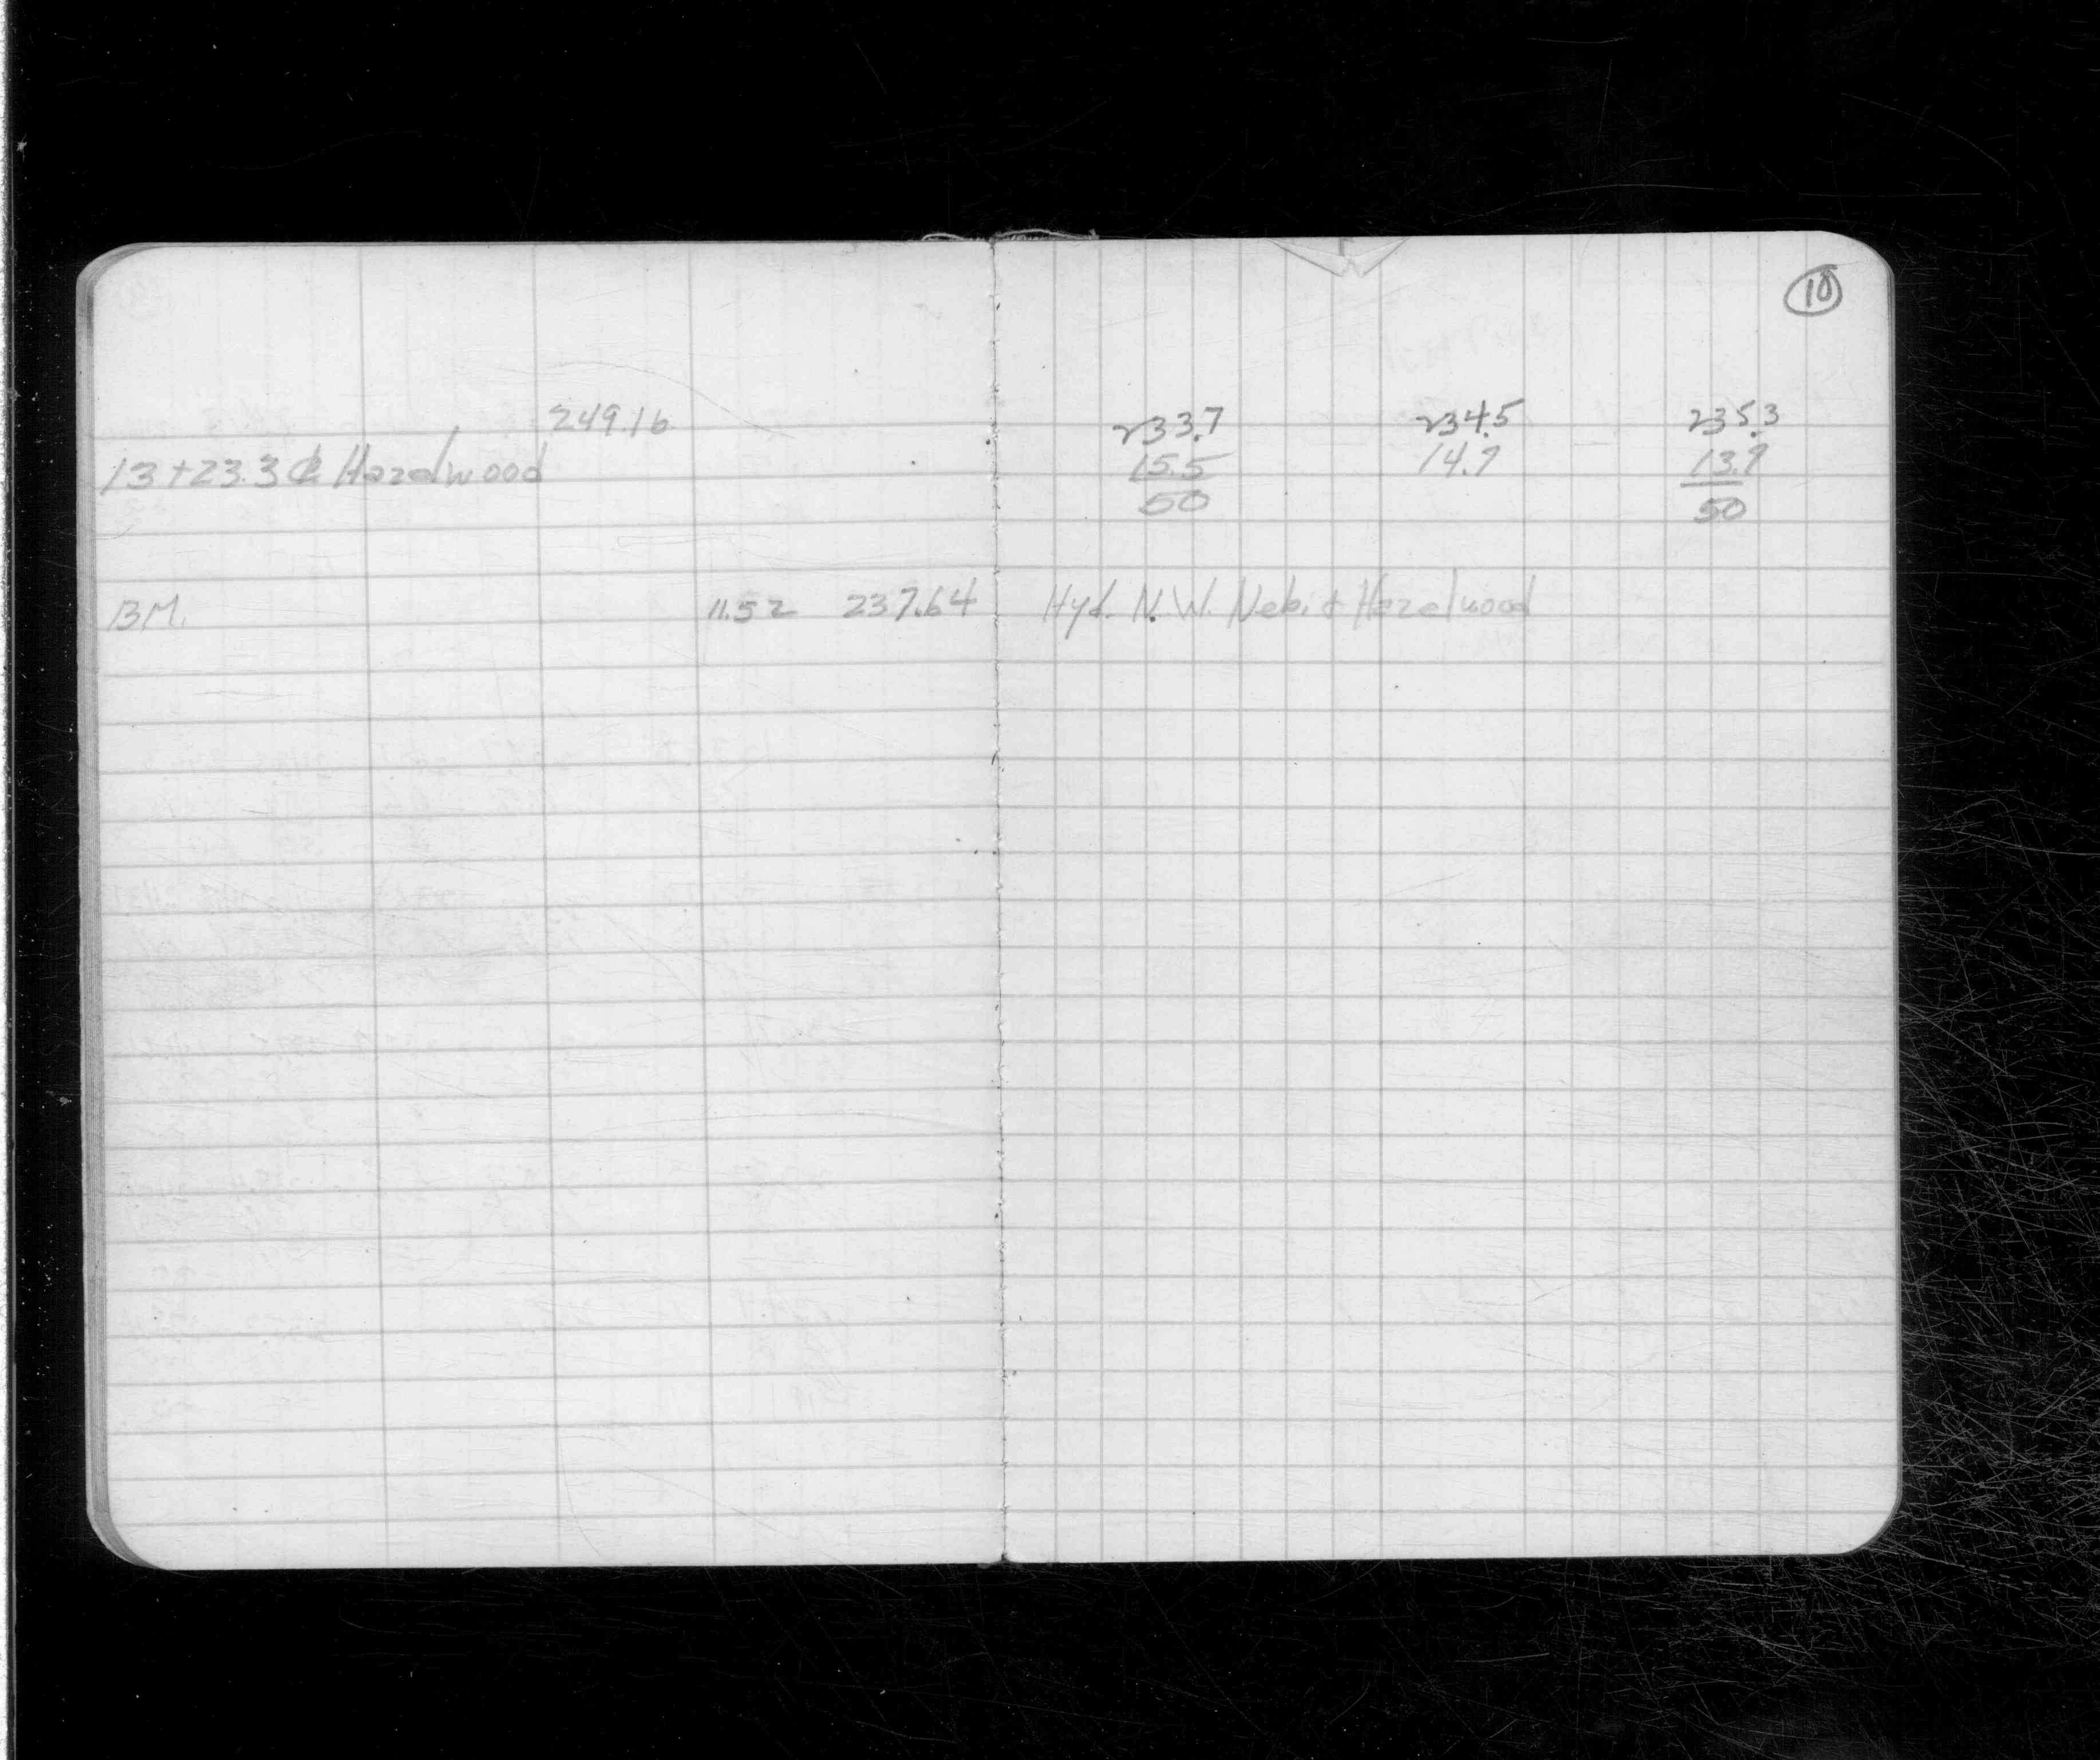 10
249.16 233.7 234.5 235.3
13+23.3 ℄ Hazelwood 15.5 14.7 13.9
50 50
BM. 11.52 237.64 Hyd. N.W. Neb. & Hazelwood